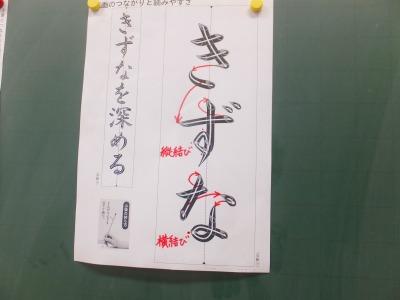 のつながりと読みやすさ
きずな
縦結び
横結び
きずなを深める